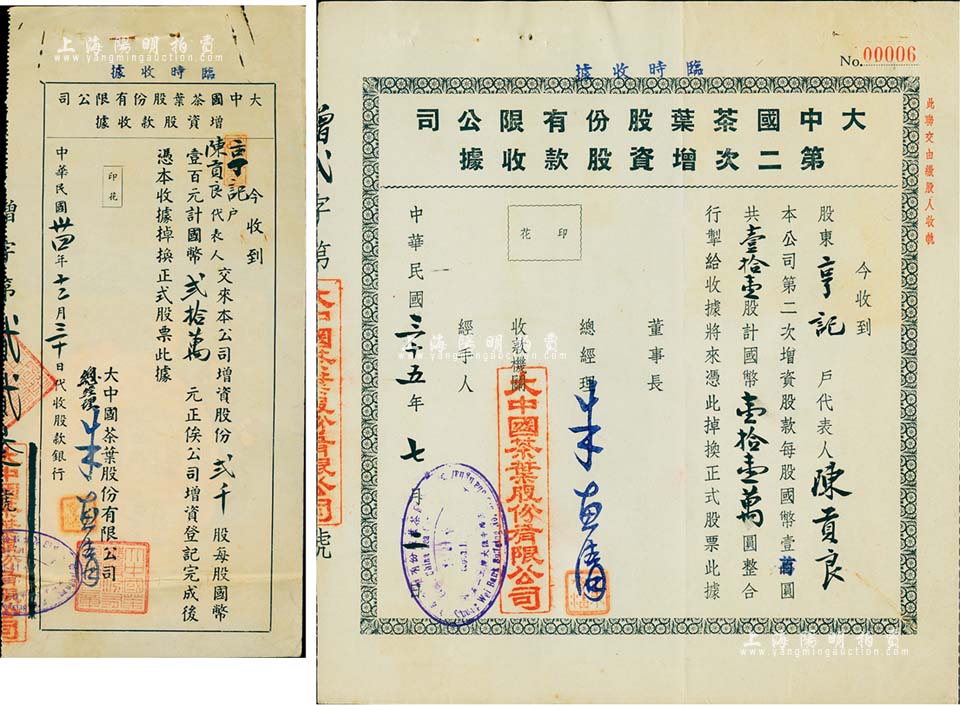 上海陽明拍賣
www.yangmingauction.com
臨時收據
大中國茶葉股份有限公司
增資股款收據
今收到
亨記戶
陳貢良代表人交來本公司增資股份貳千股每股國幣
壹百元計國幣貳拾萬元正俟公司增資登記完成後
憑本收據掉換正式股票此據
大中國茶葉股份有限公司
總經理
印花
中華民國卅四年十二月三十日代收股款銀行
增字第
號
No. 00006
臨時收據
此聯交由繳股人收執
大中國茶葉股份有限公司
第二次增資股款收據
今收到
股東亨記戶代表人陳貢良
本公司第二次增資股款每股國幣壹萬圓
共壹拾壹股計國幣壹拾壹萬圓整合
行掣給收據將來憑此掉換正式股票此據
董事長
總經理
收款機關
經手人
印花
中華民國三十五年七月
日
大中國茶葉股份有限公司
增貳字第
號
大中國茶葉股份有限公司
上海陽明拍賣
www.yangmingauction.com
上海陽明拍賣
www.yangmingauction.com
上海陽明拍賣
www.yangmingauction.com